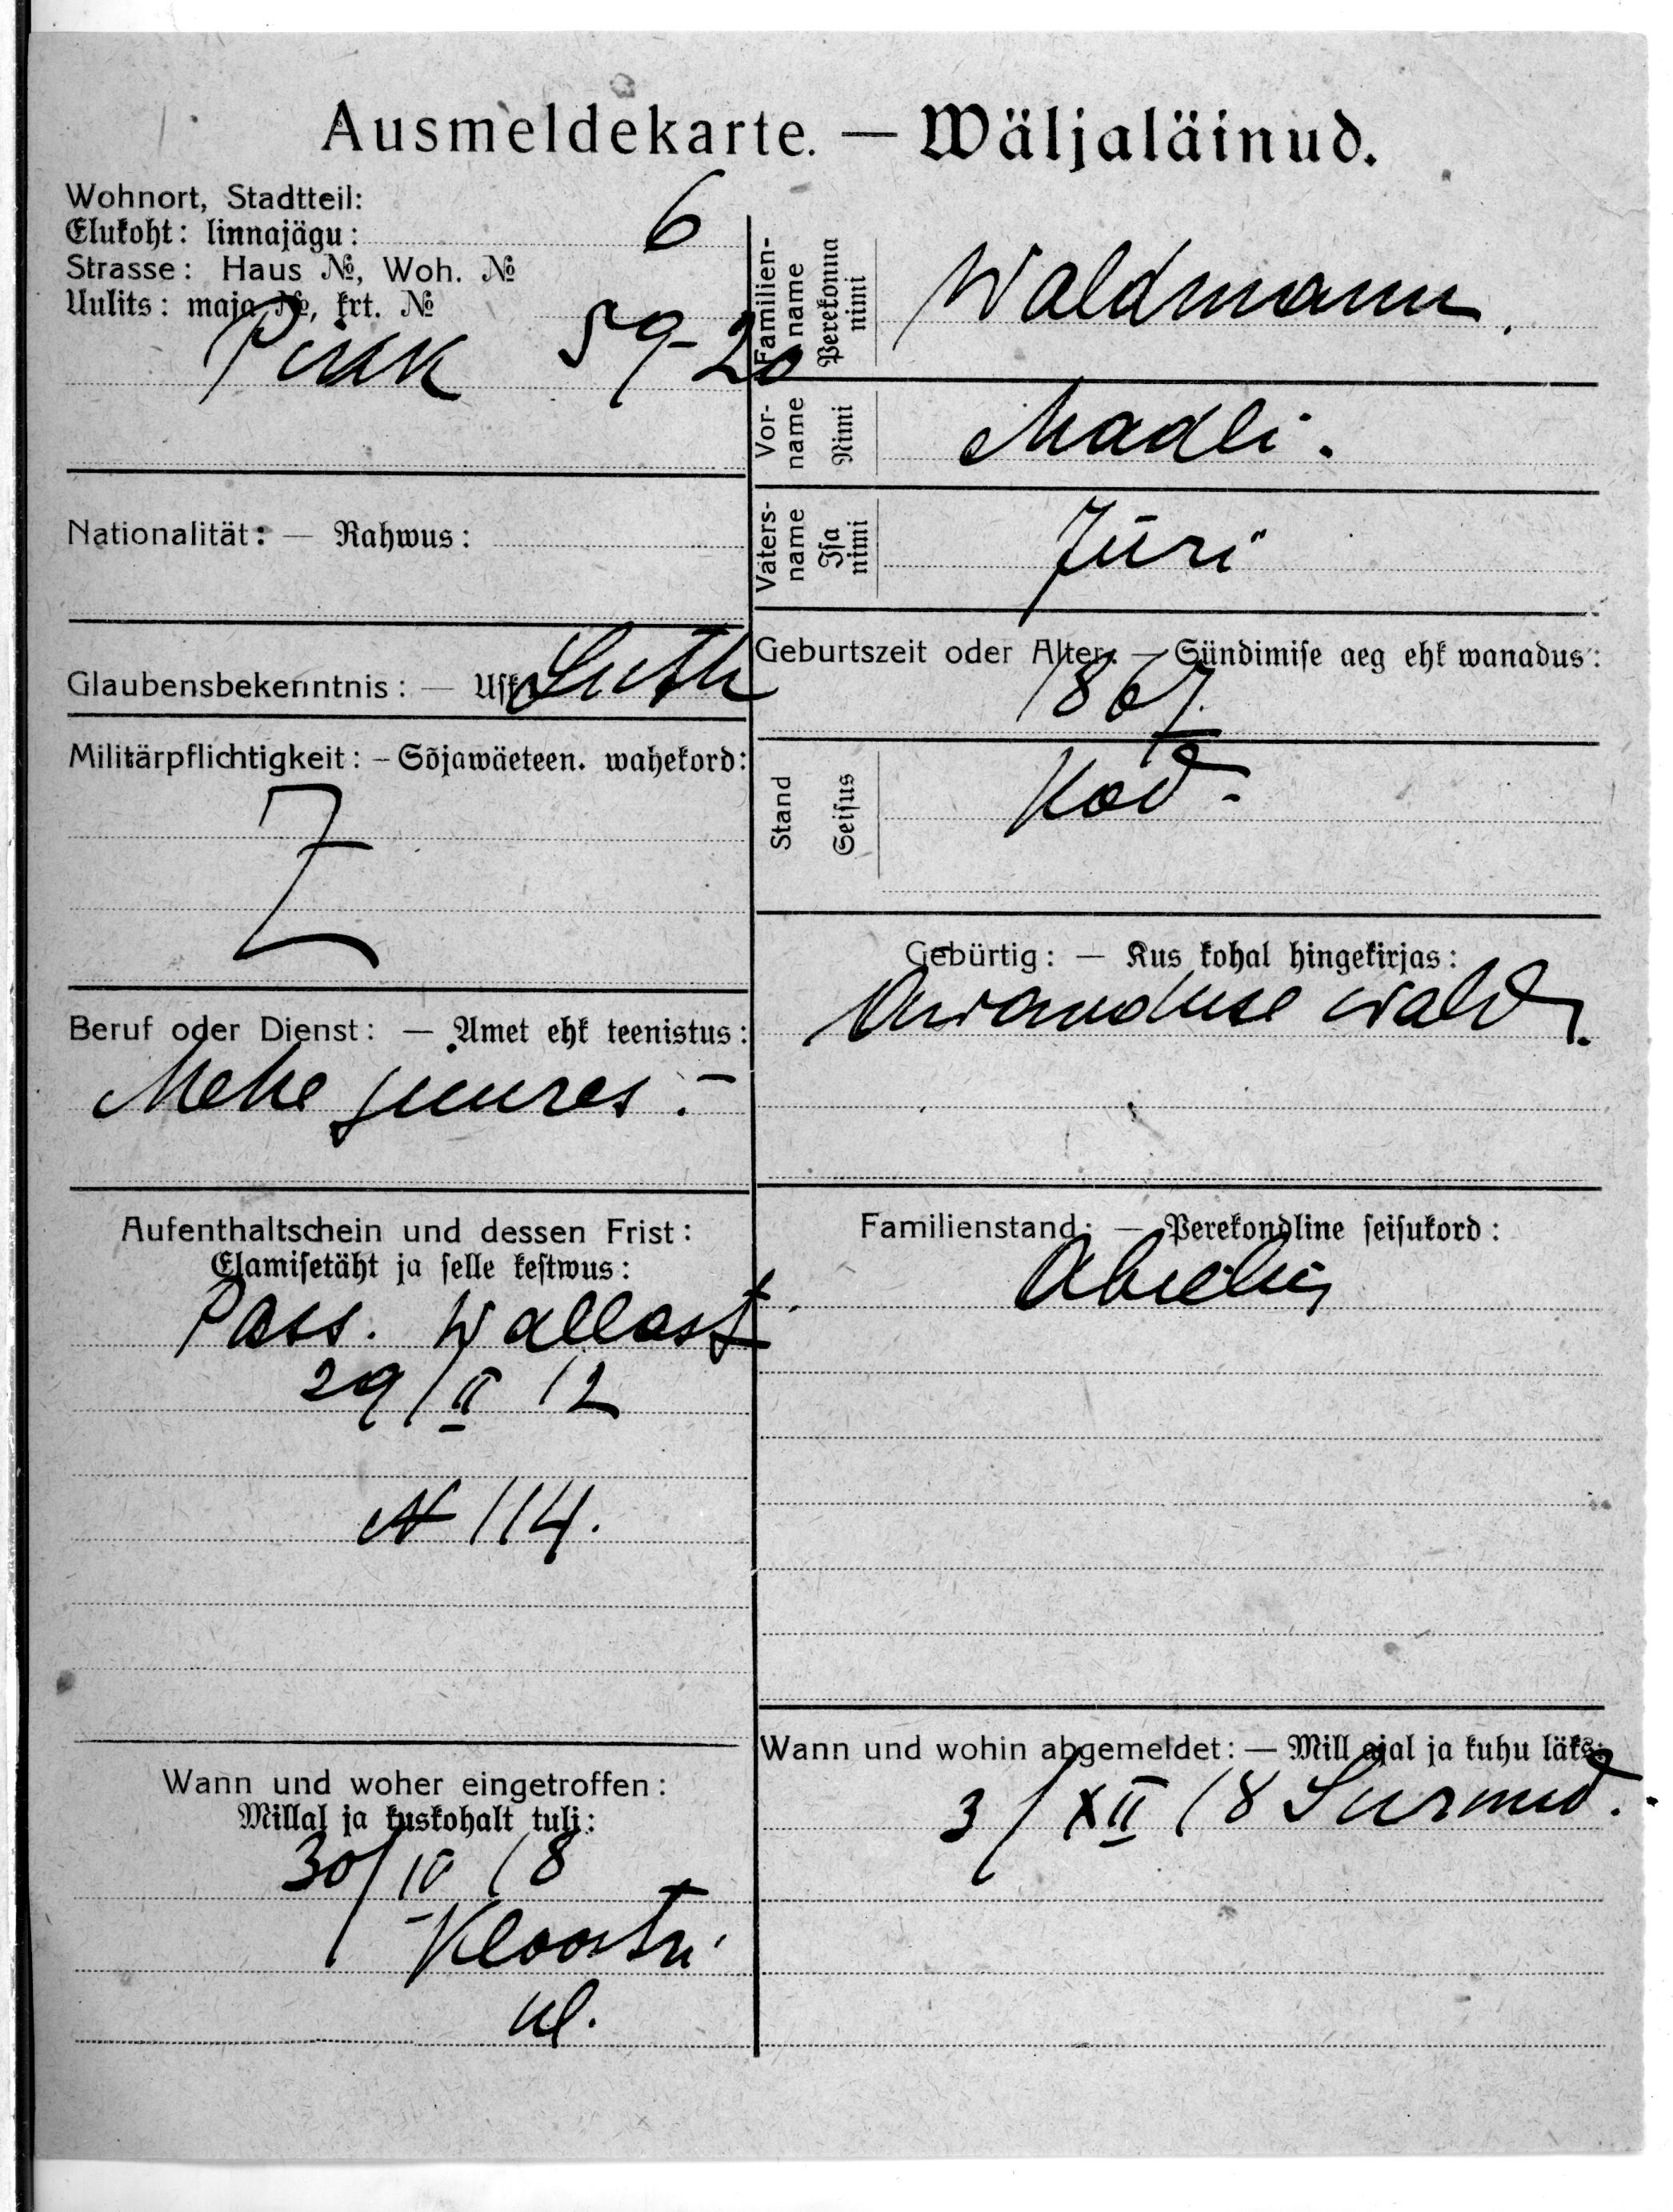 Ausmeldekarte. — Wäljaläinud.
Wohnort, Stadtteil:
Elukoht: linnajägu: 6
Strasse: Haus №, Woh. №
Uulits: maja №, krt. №
Pikk 59-20
Nationalität: — Rahwus:
Glaubensbekenntnis: — Usk Luth
Militärpflichtigkeit: — Sõjawäeteen. wahekord:
Beruf oder Dienst: — Amet ehk teenistus:
Mehe juures. —
Aufenthaltschein und dessen Frist:
Elamisetäht ja selle kestwus:
Pass. Wallast
29/II 12
N 114.
Wann und woher eingetroffen:
Millal ja kuskohalt tuli:
30/IV 18
Kloostri
ul.
Familien-
name
Perekonna
nimi
Waldmann.
Vor-
name
Nimi
Madli.
Vaters-
name
Isa
nimi
Jüri
Geburtszeit oder Alter: — Sündimise aeg ehk wanadus:
1867.
Stand
Seisus
Kod.
Gebürtig: — Kus kohal hingekirjas:
Awanduse wald.
Familienstand: — Perekondline seisukord:
Abielus
Wann und wohin abgemeldet: — Mill ajal ja kuhu läks:
3/XII 18 Surnud.